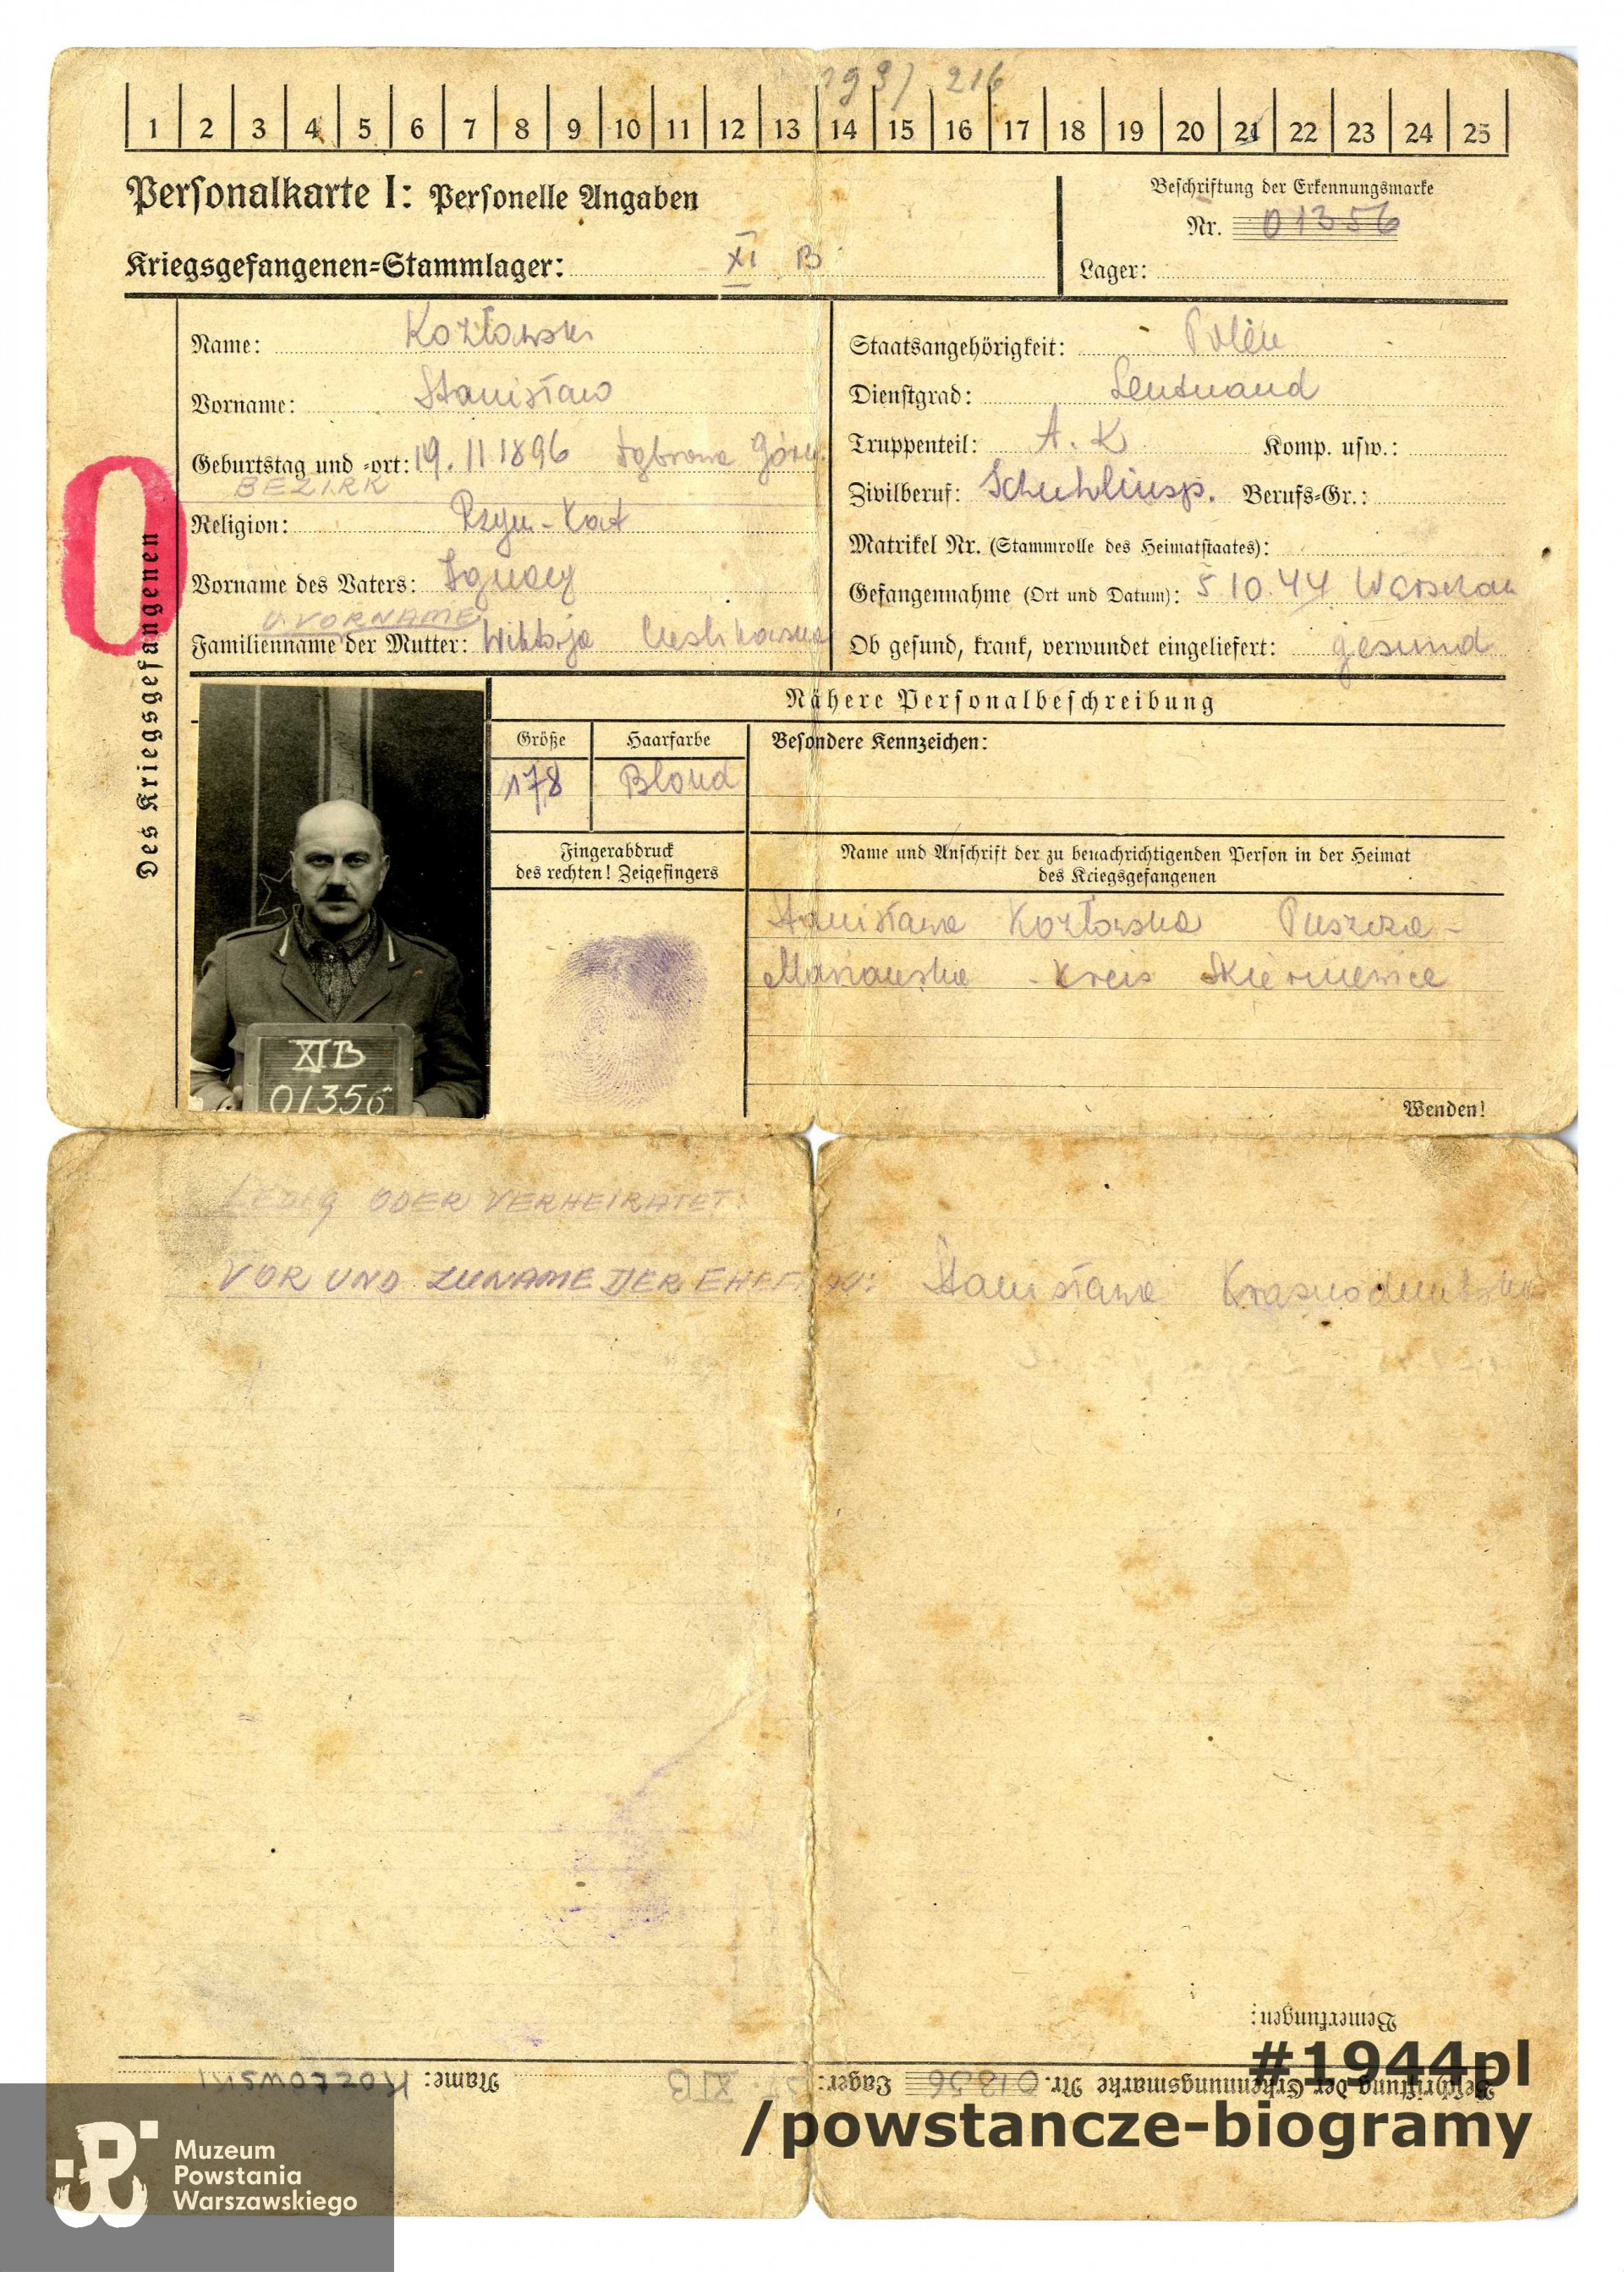 193/ 216
1 2 3 4 5 6 7 8 9 10 11 12 13 14 15 16 17 18 19 20 21 22 23 24 25
Personalkarte I: Personelle Angaben
Beschriftung der Erkennungsmarke
Nr. 01356
Kriegsgefangenen=Stammlager: XI B
Lager:
Des Kriegsgefangenen
Name: Kozłowski
Vorname: Stanisław
Geburtstag und -ort: 19.11.1896
BEZIRK
Religion: Rzym-Kat
Vorname des Vaters: Ignacy
U. VORNAME
Familienname der Mutter: Wiktorja
Staatsangehörigkeit: Polen
Dienstgrad: Leutnand
Truppenteil: A. K Komp. usw.:
Zivilberuf: Schuhlinsp. Berufs-Gr.:
Matrikel Nr. (Stammrolle des Heimatstaates):
Gefangennahme (Ort und Datum): 5.10.44 Warschau
Ob gesund, krank, verwundet eingeliefert: gesund
Nähere Personalbeschreibung
Größe Haarfarbe Besondere Kennzeichen:
178 Blond
Fingerabdruck
des rechten! Zeigefingers
Name und Anschrift der zu benachrichtigenden Person in der Heimat
des Kriegsgefangenen
Stanisława Kozłowska Puszcza-
Mariańska - Kreis Skierniewice
XI B
01356
Wenden!
LEDIG ODER VERHEIRATET:
VOR UND ZUNAME DER EHEFRAU: Stanisława
Bemerkungen:
Beschriftung der Erkennungsmarke Nr. 01356 Lager: XI B Name: KOZŁOWSKI
#1944pl
/powstancze-biogramy
Muzeum
Powstania
Warszawskiego